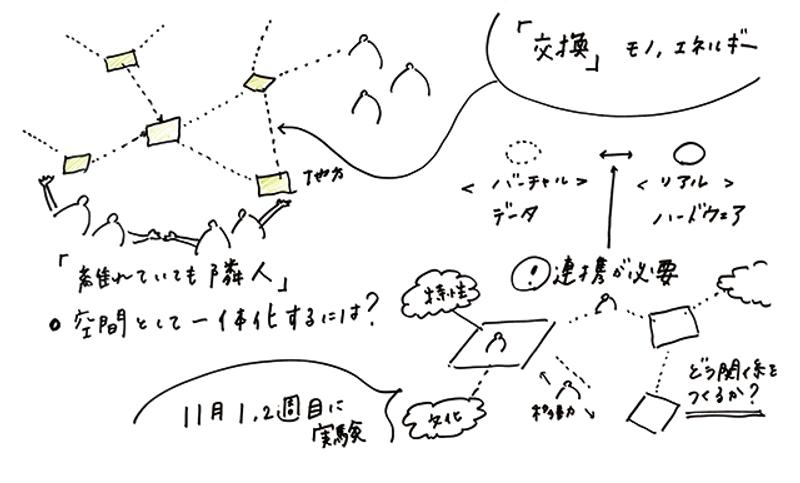 「交換」 モノ,エネルギー
地方
<バーチャル> <リアル>
データ ハードウェア
「離れていても隣人」
空間として一体化するには?
! 連携が必要
特性
文化
移動
どう関係を
つくるか?
11月1,2週目に
実験